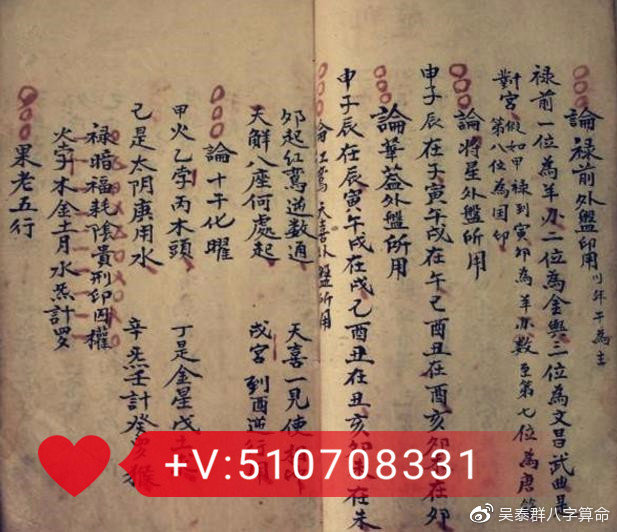 論禄前外盤印用 以年干為主
禄前一位為羊刃二位為金輿三位為文昌武曲
對宮 假如甲禄到寅卯為羊刃数至第七位為唐符
第八位為国印
論将星外盤所用
申子辰在子寅午戌在午巳酉丑在酉亥卯未在卯
論華蓋外盤所用
申子辰在辰寅午戌在戌巳酉丑在丑亥卯未在未
論紅鸞天喜外盤所用
卯起紅鸞逆数通 天喜一見使
天解八座何處起 戌宮到酉逆行
論十干化曜
甲火乙孛丙木頭 丁是金星戊土
己是太阴庚用水 辛炁壬計癸罗猴
禄暗福耗陰貴刑印囚權
火孛木金土月水炁計罗
果老五行
+V:510708331
吴泰群八字算命